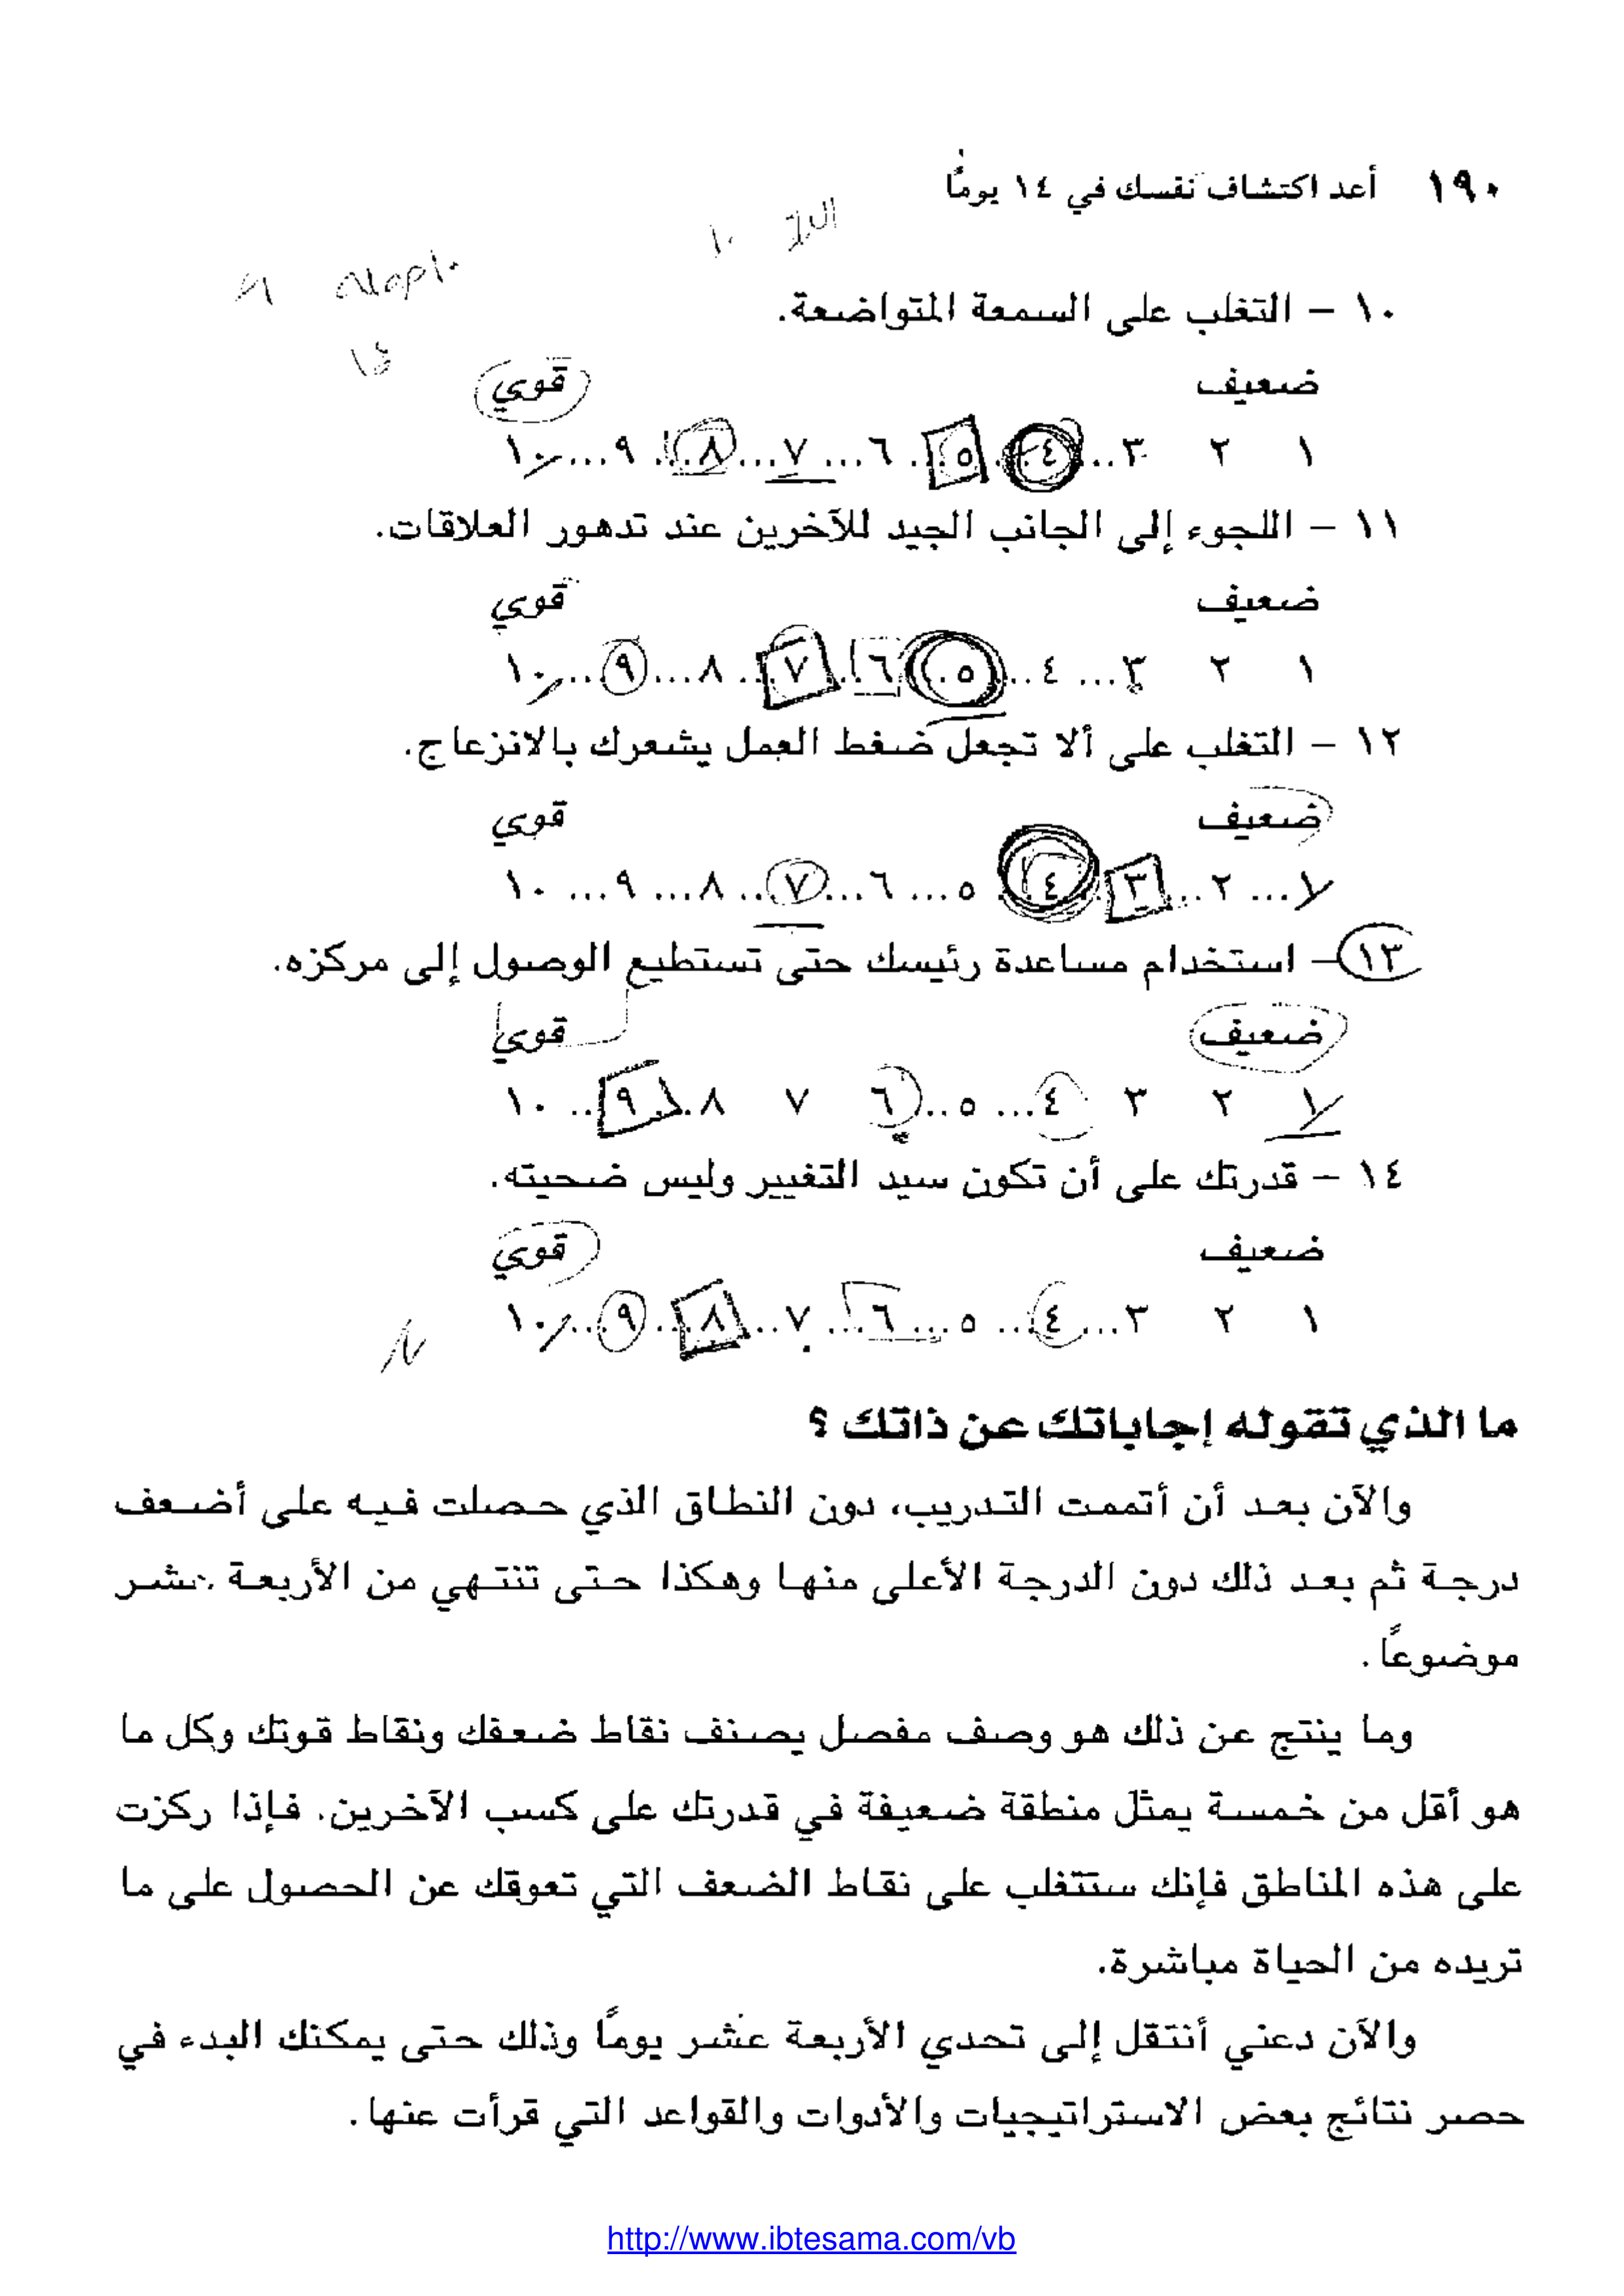 ١٩٠ أعد اكتشاف نفسك في ١٤ يومًا
١٠ – التغلب على السمعة المتواضعة.
ضعيف قوي
١ ٢ ٣... ٤... ٥... ٦... ٧... ٨... ٩... ١٠
١١ – اللجوء إلى الجانب الجيد للآخرين عند تدهور العلاقات.
ضعيف قوي
١ ٢ ٣... ٤... ٥... ٦... ٧... ٨... ٩... ١٠
١٢ – التغلب على ألا تجعل ضغط العمل يشعرك بالانزعاج.
ضعيف قوي
١... ٢... ٣... ٤... ٥... ٦... ٧... ٨... ٩... ١٠
١٣ – استخدام مساعدة رئيسك حتى تستطيع الوصول إلى مركزه.
ضعيف قوي
١ ٢ ٣ ٤... ٥... ٦ ٧ ٨... ٩... ١٠
١٤ – قدرتك على أن تكون سيد التغيير وليس ضحيته.
ضعيف قوي
١ ٢ ٣... ٤... ٥... ٦... ٧... ٨... ٩... ١٠
ما الذي تقوله إجاباتك عن ذاتك ؟
والآن بعد أن أتممت التدريب، دون النطاق الذي حصلت فيه على أضعف
درجة ثم بعد ذلك دون الدرجة الأعلى منها وهكذا حتى تنتهي من الأربعة عشر
موضوعًا.
وما ينتج عن ذلك هو وصف مفصل يصنف نقاط ضعفك ونقاط قوتك وكل ما
هو أقل من خمسة يمثل منطقة ضعيفة في قدرتك على كسب الآخرين. فإذا ركزت
على هذه المناطق فإنك ستتغلب على نقاط الضعف التي تعوقك عن الحصول على ما
تريده من الحياة مباشرة.
والآن دعني أنتقل إلى تحدي الأربعة عشر يومًا وذلك حتى يمكنك البدء في
حصر نتائج بعض الاستراتيجيات والأدوات والقواعد التي قرأت عنها.
http://www.ibtesama.com/vb